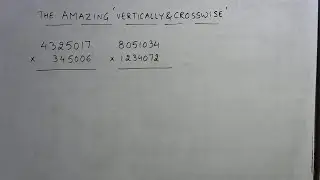 THE AMAZING 'VERTICALLY & CROSSWISE'
4325017 8051034
× 345006 × 1234072